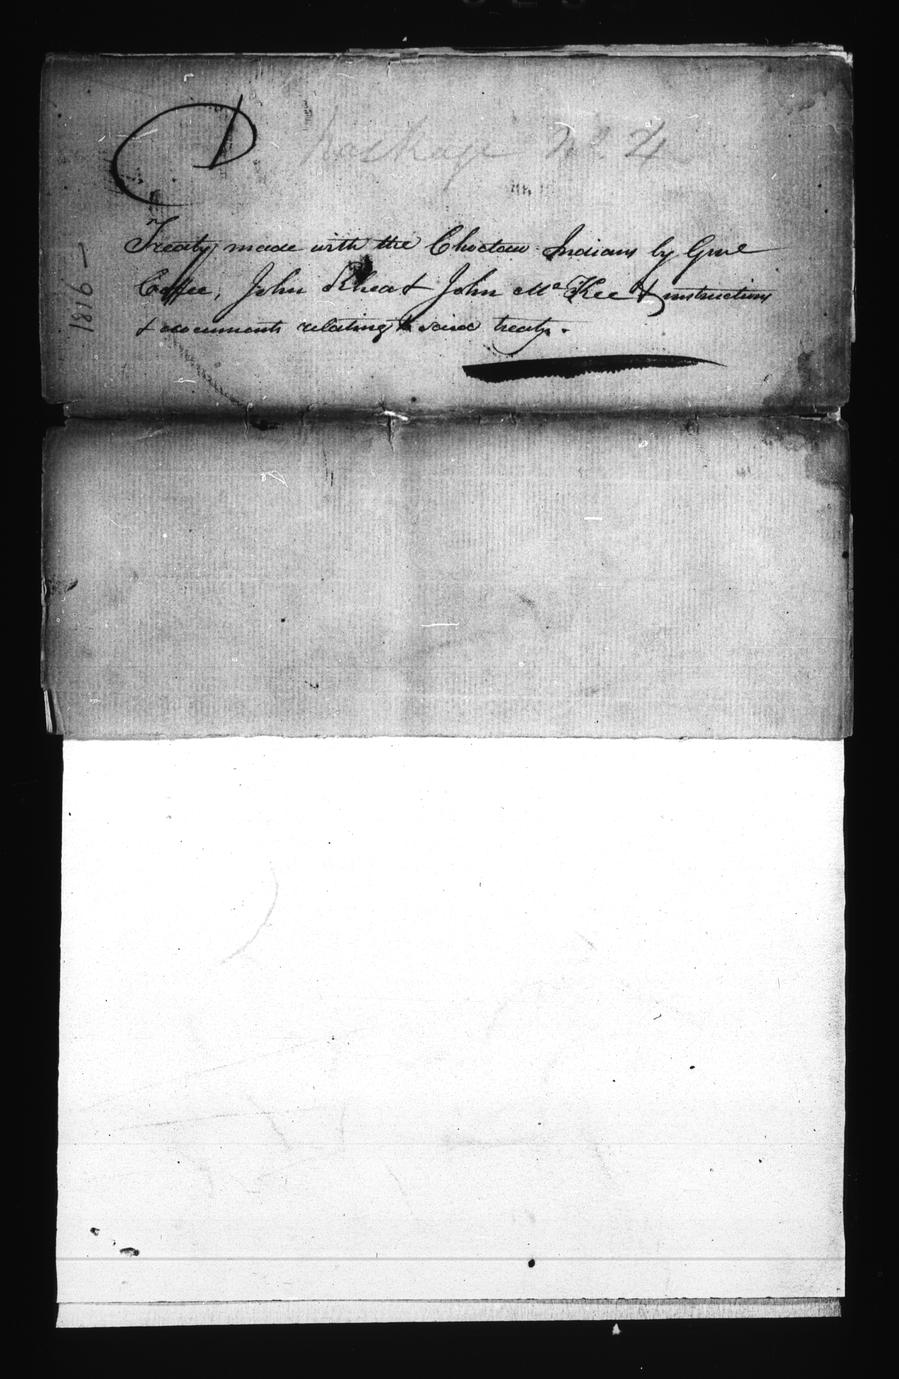 D
Package No. 4
Treaty made with the Choctaw Indians by Genl
Coffee, John Rhea & John McKee & instructions
& documents relating to said treaty.
1816 —